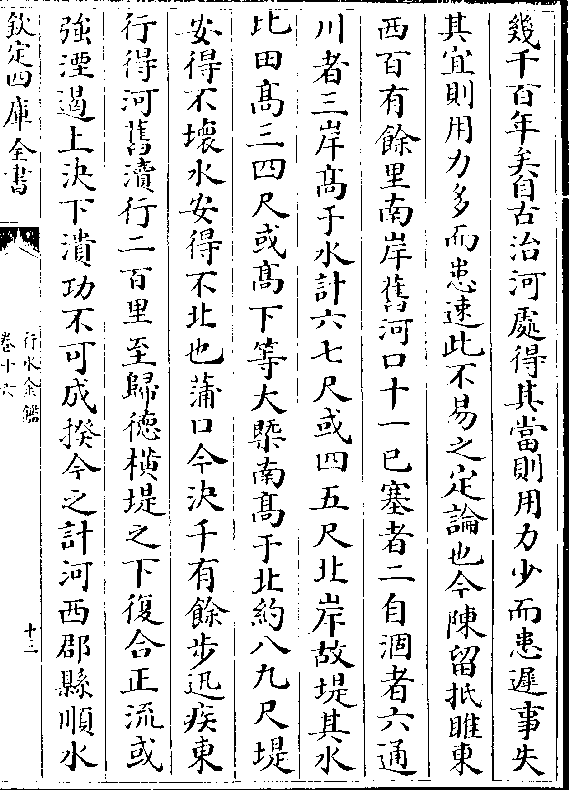 幾千百年矣自古治河處得其當則用力少而患遲事失
其宜則用力多而患速此不易之定論也今陳留抵睢東
西百有餘里南岸舊河口十一已塞者二自涸者六通
川者三岸髙于水計六七尺或四五尺北岸故堤其水
比田髙三四尺或髙下等大槩南髙于北約八九尺堤
安得不壞水安得不北也蒲口今決千有餘步迅疾東
行得河舊瀆行二百里至歸德橫堤之下復合正流或
強湮遏上決下潰功不可成揆今之計河西郡縣順水
欽定四庫全書
行水金鑑
卷十六
十三